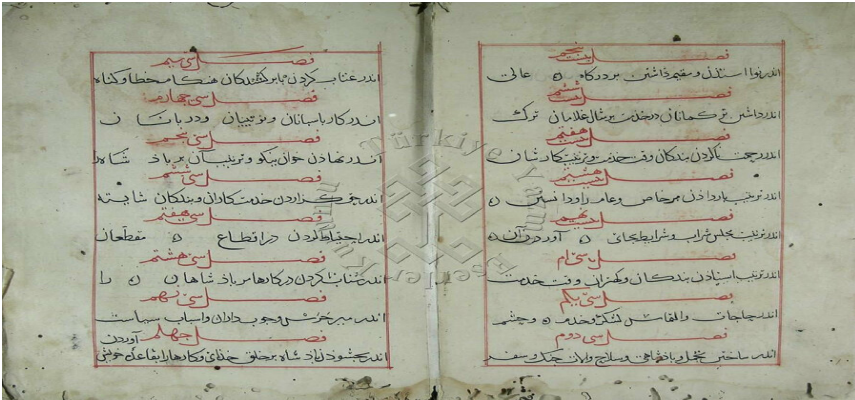 فصل بیست پنجم
اندر نوا استدن و مقیم داشتن بر درکاه عالی
فصل بیست ششم
اندر داشتن ترکمانان در خدمت بر مثال غلامان ترک
فصل بیست هفتم
اندر زحمت ناکردن بندکان وقت خدمت و ترتیب کار شان
فصل بیست هشتم
اندر ترتیب بار داذن مر خاص و عام را
فصل بیست نهم
اندر ترتیب مجلس شراب و شرایط بجای آوردن آن
فصل سی ام
اندر ترتیب استاذن بندکان و کهتران وقت خدمت
فصل سی یکم
اندر حاجات و التماس لشکر و خدم و حشم
فصل سی دوم
اندر ساختن تجمل و سلاح و آلات جنک و سفر
فصل سی سیم
اندر عتاب کردن با برکشیدکان هنکام خطا و کناه
فصل سی چهارم
اندر کار باسبانان و نوبتیان و دربانان
فصل سی پنجم
اندر نهاذن خوان نیکو و ترتیب آن بر باذشاه را
فصل سی ششم
اندر حق کزاردن خدمتکاران و بندکان شایسته
فصل سی هفتم
اندر احتیاط کردن در اقطاع مقطعان
فصل سی هشتم
اندر شتاب ناکردن در کارها مر باذشاهان را
فصل سی نهم
اندر میر حرس و جوب داران و اسباب سیاست
فصل چهلم
اندر بخشوذن باذشاه بر خلق خذای و کارها را بقاعده خویش آوردن
Türkiye Yazma Eserler